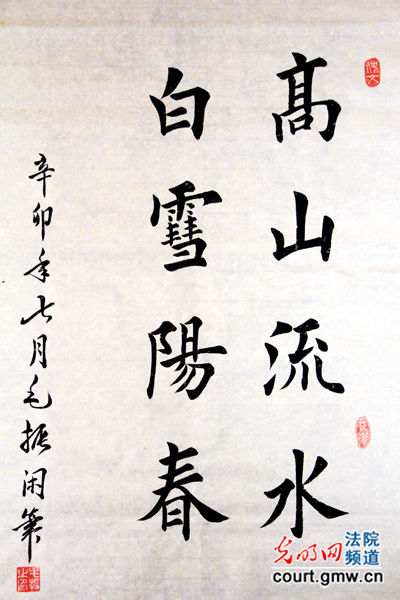 髙山流水
白雪陽春
辛卯年七月毛振闲筆
光明网
法院
频道
court.gmw.cn